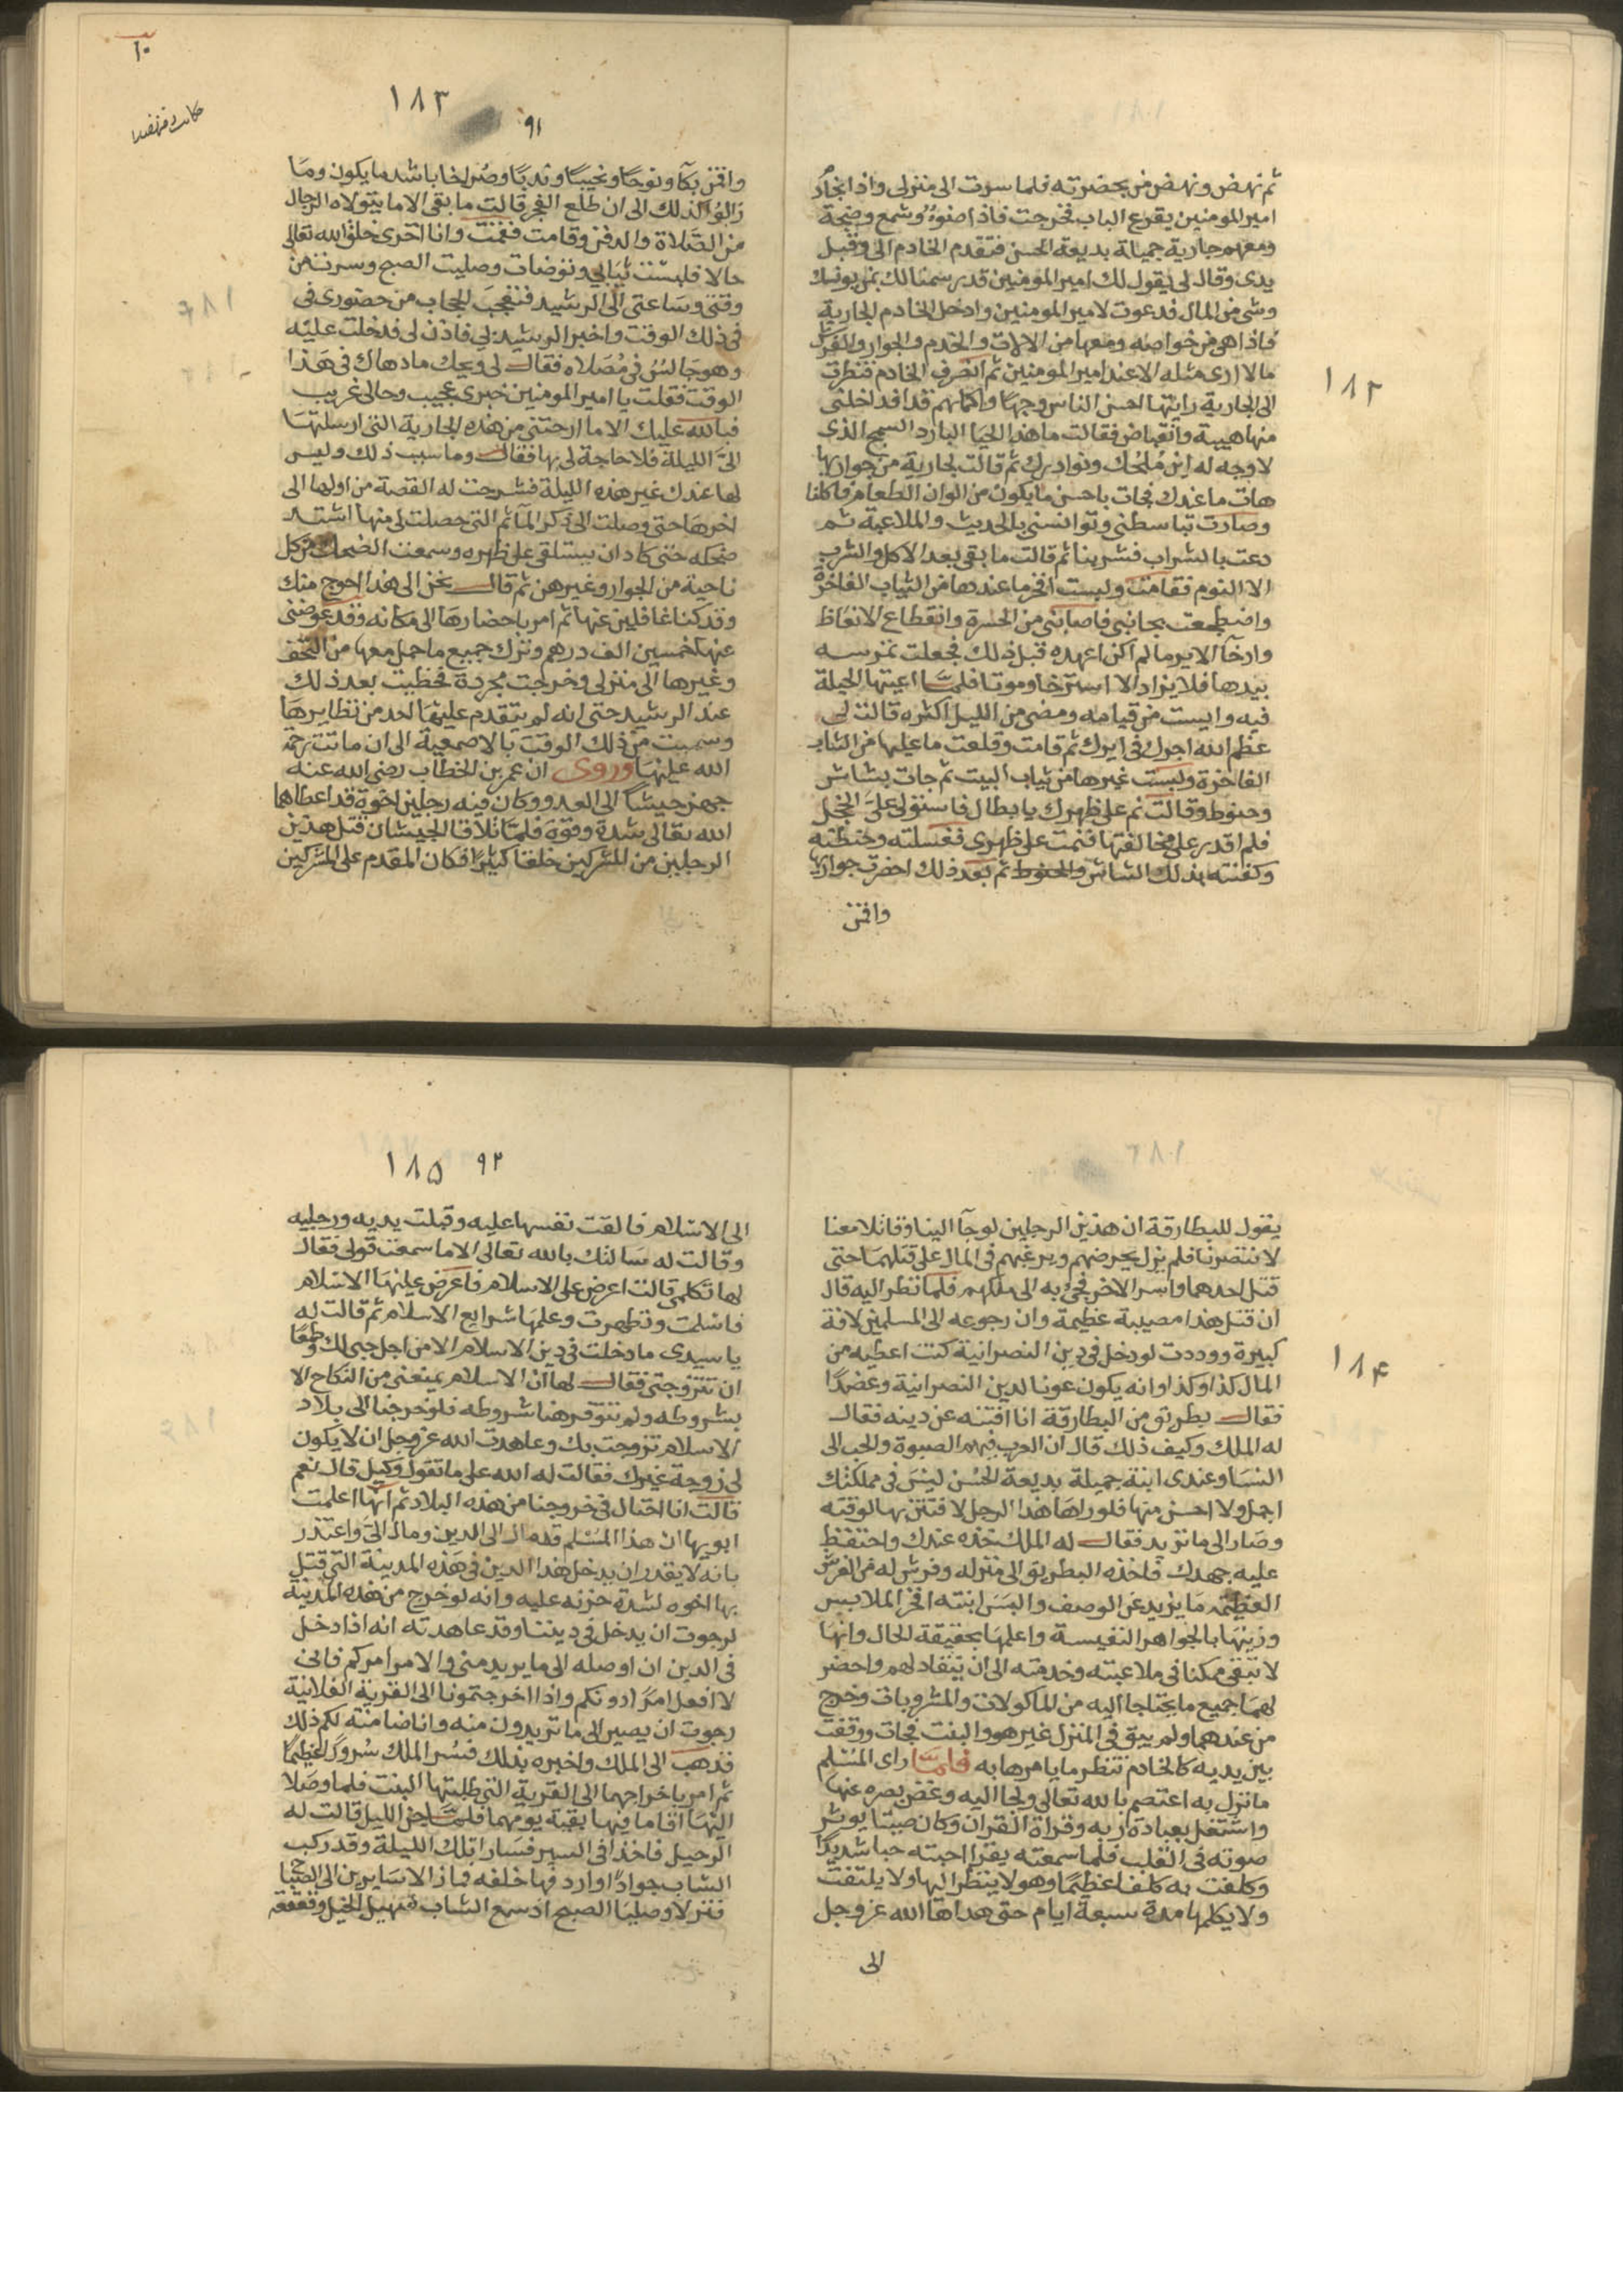 ثم نهض ونهض من بحضرته فلما سرت الى منزلى واذا بخادم
امير المومنين يقرع الباب فخرجت فاذا ضوء وشمع وضجة
ومعهم جارية جميلة بديعة الحسن فتقدم الخادم الى وقبل
يدى وقال لى يقول لك امير المومنين قد رسمنا لك بمن يونسك
وشى من المال فدعوت لامير المومنين وادخل الخادم الجارية
فاذا هى من خواصه ومعها من الالات والخدم والجوار والفرش
مالا ارى مثله الا عند امير المومنين ثم انصرف الخادم فنظرت
الى الجارية رايتها احسن الناس وجها واكملهم قدا فداخلنى
منها هيبة وانقباض فقالت ما هذا الحيا البارد السمج الذى
لا وجه له اين مُلَحُك ونوادرك ثم قالت لجارية من جوارها
هات ما عندك فجات باحسن ما يكون من الوان الطعام فاكلنا
وصارت تباسطنى وتوانسنى بالحديث والملاعبة ثم
دعت بالشراب فشربنا ثم قالت ما بقى بعد الاكل والشرب
الا النوم فقامت ولبست افخر ما عندها من الثياب الفاخرة
واضطجعت بجانبى فاصابنى من الحسرة وانقطاع الانعاظ
وارخآ الاير ما لم اكن اعهده قبل ذلك فجعلت تمرسه
بيدها فلا يزاد الا استرخا وموتا فلمّا اعيتها الحيلة
فيه وايست من قيامه ومضى من الليل اكثره قالت لى
عظم الله اجرك فى ايرك ثم قامت وقلعت ما عليها من الثياب
الفاخرة ولبست غيرها من ثياب البيت ثم جات بشاش
وحنوط وقالت نم على ظهرك يا بطال فاستولى علىَّ الخجل
فلم اقدر على مخالفتها فنمت على ظهرى فغسلته وحنطته
وكفنته بذلك الشاش والحنوط ثم بعد ذلك احضرت جوارها
واقمن
١٨٢
١٠
١٨٣
٩١
واقمن بكآ ونوحًا ونحيبًا وندبًا وصُراخا باشد ما يكون وما
زالوا كذلك الى ان طلع الفجر قالت ما بقى الا ما يتولاه الرجال
من الصَّلاة والدفن وقامت فقمت وانا اخزى خلق الله تعالى
حالا فلبست ثيابى وتوضات وصليت الصبح وسرت من
وقتى وسَاعتى الى الرشيد فتعجب الحجاب من حضورى فى
فى ذلك الوقت واخبر الرشيد بى فاذن لى فدخلت عليْه
وهو جالسٌ فى مُصَلاه فقال لى ويحك ما دهاك فى هَذا
الوقت فقلت يا امير المومنين خبرى عجيب وحالى غريب
فبالله عليك الا ما ارحتنى من هذه الجارية التى ارسلتها
الىَّ الليلة فلا حاجة لى بها فقال وما سبب ذلك وليس
لها عندك غير هذه الليلة فشرحت له القصة من اولها الى
اخرهَا حتى وصلت الى ذكر المآتم التى حصلت لى منها اشتد
ضحكه حتى كاد ان يستلقى على ظهره وسمعت الضحك من كل
ناحية من الجوار وغيرهن ثم قال نحن الى هذا احوج منك
وقد كنا غافلين عنها ثم امر باحضارهَا الى مكانه وقد عوضنى
عنها خمسين الف درهم وترك جميع ما حمل معها من التحف
وغيرها الى منزلى وخرجت مجردة فحظيت بعد ذلك
عند الرشيد حتى انه لم يتقدم عليهَا احد من نظايرهَا
وسميت من ذلك الوقت بالاصمعية الى ان ماتت رحمة
الله عليهَا وروى ان عمر بن الخطاب رضى الله عنه
جهز جيشاً الى العدو وكان فيه رجلين اخوة قد اعطاهما
الله تعالى شدة وقوة فلمّا تلاقا الجيشان قتل هذين
الرجلين من المشركين خلقا كثيرًا فكان المقدم على المشركين
يقول للبطارقة ان هذين الرجلين لو جآ الينا وقاتلا معنا
لانتصرنا فلم يزل يحرضهم ويرغبهم فى المال على قتلهمَا حتى
قتل احدهما واسر الاخر فجى به الى ملكهم فلما نظر اليه قال
ان قتل هذا مصيبة عظيمة وان رجوعه الى المسلمين لافة
كبيرة ووددت لو دخل فى دين النصرانية كنت اعطيه من
المال كذا وكذا وانه يكون عونا لدين النصرانية وعضدًا
فقال بطريق من البطارقة انا افتنه عن دينه فقال
له الملك وكيف ذلك قال ان العرب فيهم الصبوة والحب الى
النسَا وعندى ابنة جميلة بديعة الحُسْن ليسَ فى مملكتك
اجمل ولا احسن منها فلو راهَا هذا الرجل لافتتن بها لوقته
وصَار الى ما تريد فقال له الملك خذه عندك واحتفظ
عليه جهدك فاخذه البطريق الى منزله وفرش له من الفرش
العظيم ما يزيد عن الوصف والبسَ ابنته افخر الملابس
وزينهَا بالجواهر النفيسة واعلمهَا بحقيقة الحال وانهَا
لا تبقى ممكنا فى ملاعبته وخدمته الى ان ينقاد لهم واحضر
لهمَا جميع ما يحتاجا اليه من الماكولات والمشروبات وخرج
من عندهما ولم يبق فى المنزل غير هو والبنت فجات ووقفت
بين يديه كالخادم تنظر ما يامرها به فلمّا راى المُسْلم
ما نزل به اعتصم بالله تعالى ولجا اليه وغض بصره عنها
واشتغل بعبادة ربه وقراة القران وكان صيتا يوثر
صوته فى القلب فلما سمعته يقرا احبته حبا شديدًا
وكلفت به كلفا عظيمًا وهو لا ينظر اليها ولا يلتفت
ولا يكلمها مدة سبعة ايام حتى هداها الله عز وجل
الى
١٨۴
١٨۵
٩٢
الى الاسْلام فالقت نفسها عليه وقبلت يديه ورجليه
وقالت له سَالتك بالله تعالى الا ما سمعت قولى فقال
لها تكلمى قالت اعرض على الاسلام فاعرض عليهَا الاسْلام
فاسْلمت وتطهرت وعلمهَا شرايع الاسلام ثم قالت له
يا سيدى ما دخلت فى دين الاسلام الا من اجل حبى لك وطمعًا
ان تتزوجنى فقال لها ان الاسلام يمنعنى من النكاح الا
بشروطه ولم تتوفر هنا شروطه فلو خرجنا الى بلاد
الاسلام تزوجت بك وعاهدت الله عز وجل ان لا يكون
لى زوجة غيرك فقالت له الله على ما تقول وكيل قال نعم
قالت انا احتال فى خروجنا من هذه البلاد ثم انها اعلمت
ابويها ان هذا المُسْلم قد مال الى الدين ومال الىَّ واعتذر
بانه لا يقدر ان يدخل هذا الدين فى هَذه المدينة التى قتل
بها اخوه لشدة حزنه عليه وانه لو خرج من هذه المدينة
لرجوت ان يدخل فى ديننا وقد عاهدته انه اذا دخل
فى الدين ان اوصله الى ما يريد منى والامر امركم فانى
لا افعل امرًا دونكم واذا اخرجتمونا الى القرية الفلانية
رجوت ان يصير الى ما تريدون منه وانا ضامنة لكم ذلك
فذهب الى الملك واخبره بذلك فسُر الملك سُرورًا عظيمًا
ثم امر باخراجهما الى القرية التى طلبتها البنت فلما وصَلا
اليهَا اقاما فيها بقية يومهما فلمّا جن الليل قالت له
الرحيل فاخذا فى السير فسَارا تلك الليلة وقد ركب
الشاب جوادًا واردفها خلفه فما زالا سَايرين الى الصبا
فنزلا وصليَا الصبح اذ سمع الشاب صهيل الخيل وقعقعة